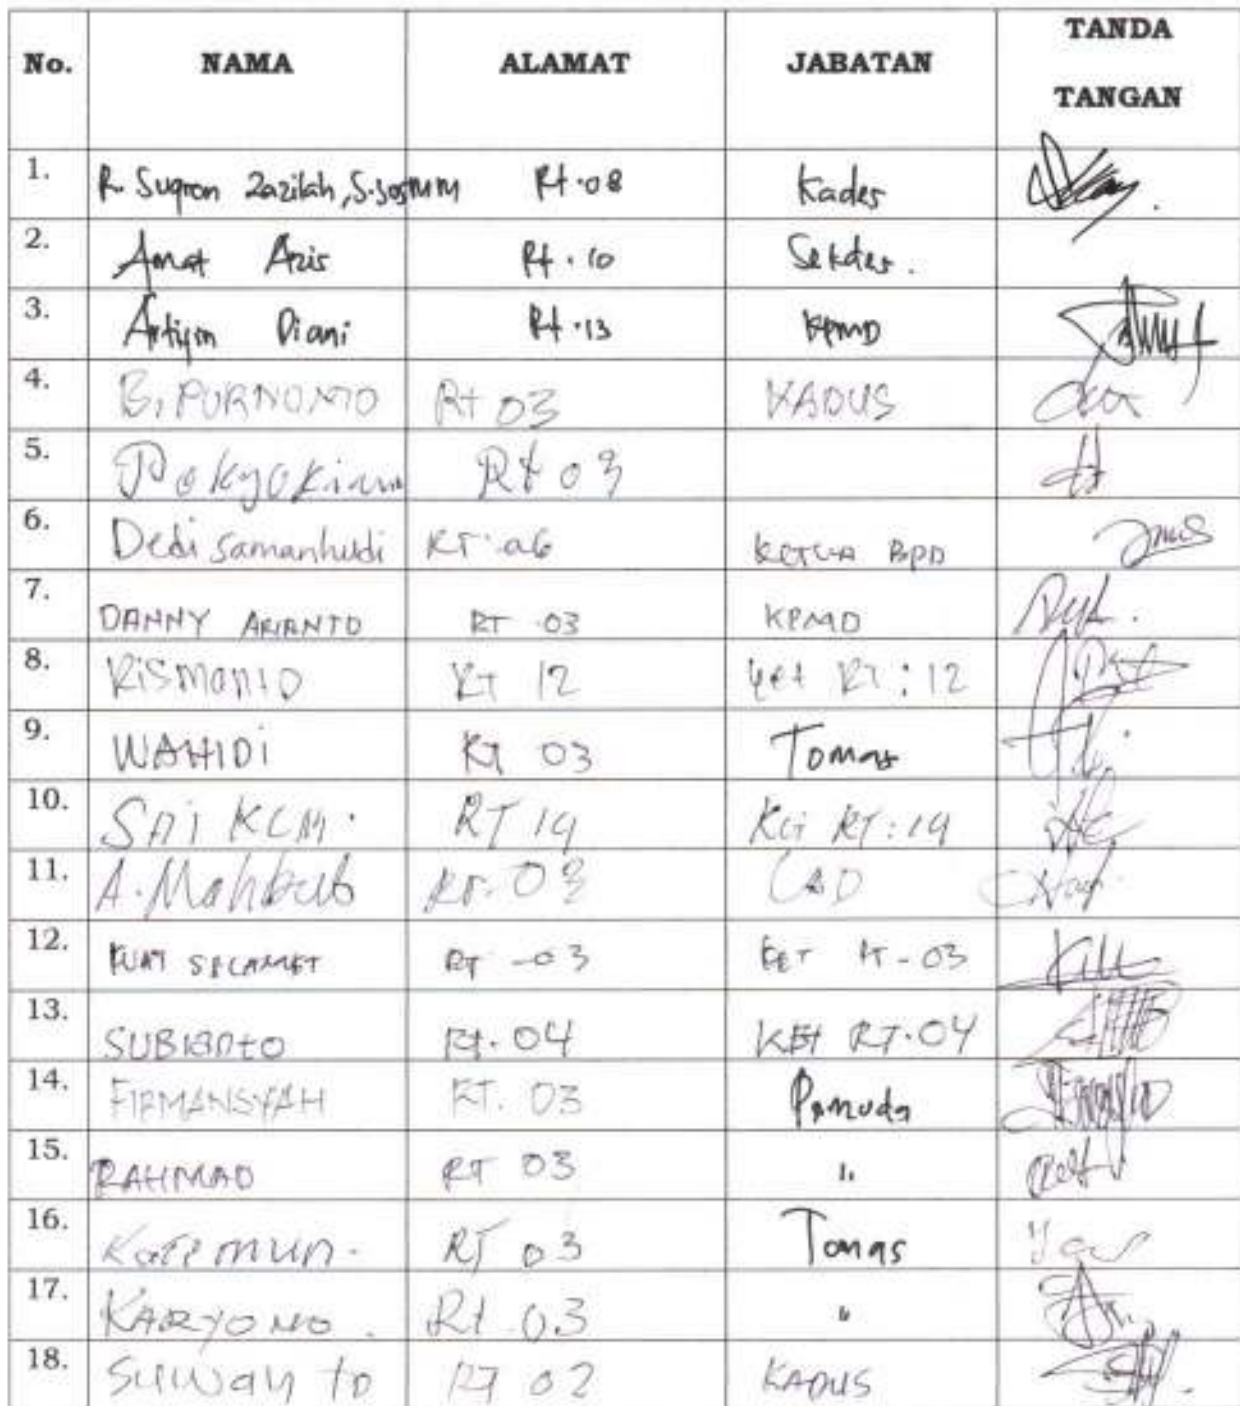 No. NAMA ALAMAT JABATAN TANDA TANGAN
1. R. Sugron Zazilah, S.Sos MM Rt.08 Kades
2. Amat Azis Rt.10 Sekdes.
3. Diani Rt.13 KPMD
4. B. PURNOMO Rt 03 KADUS
5. Rt 03
6. Dedi Samanhudi RT.06 KETUA BPD
7. DANNY ARIANTO RT 03 KPMD
8. RISMANTO RT 12 Ket RT:12
9. WAHIDI RT 03 Tomas
10. RT 19 RT:19
11. A. Mahbub RT. 03
12. KUAT SELAMET RT -03 KET RT-03
13. SUBIANTO Rt. 04 KET RT.04
14. FIRMANSYAH RT. 03 Pemuda
15. RAHMAD RT 03 "
16. Katimun. RT 03 Tomas
17. KARYONO. Rt 03 "
18. Suwanto RT 02 KADUS